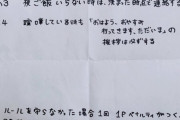 3 夜ご飯いらない時は、決まった時点で連絡する
4 喧嘩している時も「おはよう、おやすみ
行ってきます、ただいま」の
挨拶は必ずする
ルールを守らなかった場合 1回 1P ペナルティがつく